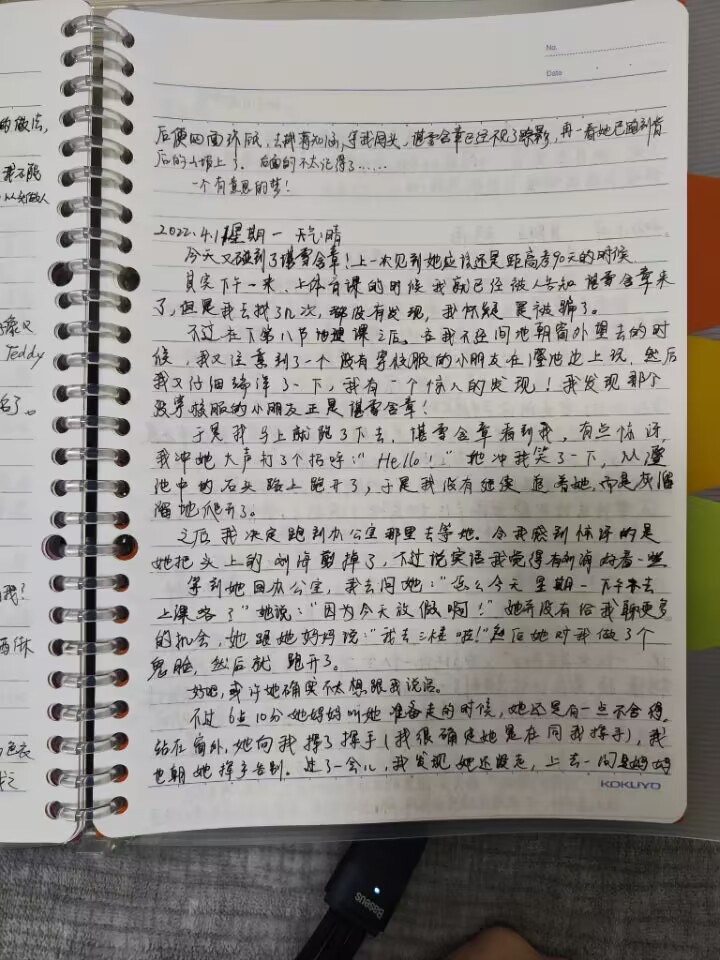 的做法,
我不能
Teddy
名了。
我?
No.
Date
后便四面环顾,去找 等我回头,谌雪含章已经不见了踪影,再一看她已跑到背
后的小坡上了。后面的不太记得了……
一个有意思的梦!
2022.4.11星期一 天气晴
今天又碰到了谌雪含章!上一次见到她应该还是距高考90天的时候
其实下午一来,上体育课的时候我就已经被人告知谌雪含章来
了,但是我去找了几次,都没有发现,我怀疑是被骗了。
不过在下第八节地理课之后,在我不经间地朝窗外望去的时
候,我又注意到了一个没有穿校服的小朋友在 池边上玩,然后
我又仔细端详了一下,我有一个惊人的发现!我发现那个
没穿校服的小朋友正是谌雪含章!
于是我马上就跑了下去,谌雪含章看到我,有点惊讶,
我冲她大声打了个招呼:"Hello!"她冲我笑了一下,从
池中的石头路上跑开了,于是我没有继续追着她,而是灰溜
溜地爬开了。
之后我决定跑到办公室那里去等她。令我感到惊讶的是
她把头上的刘海剪掉了,不过说实话我觉得有刘海好看一些
等到她回办公室,我去问她:"怎么今天星期一下午来
上课 了"她说:"因为今天放假啊!"她并没有给我聊更多
的机会,她跟她妈妈说:"我去三楼啦!"然后她对我做了个
鬼脸,然后就跑开了。
好吧,或许她确实不太想跟我说话。
不过6点10分她妈妈叫她准备走的时候,她还是有一点不舍得,
站在窗外,她向我挥了挥手(我很确定她是在同我挥手),我
也朝她挥手告别。过了一会儿,我发现她还没走,上去一问是她妈妈
KOKUYO
Baseus